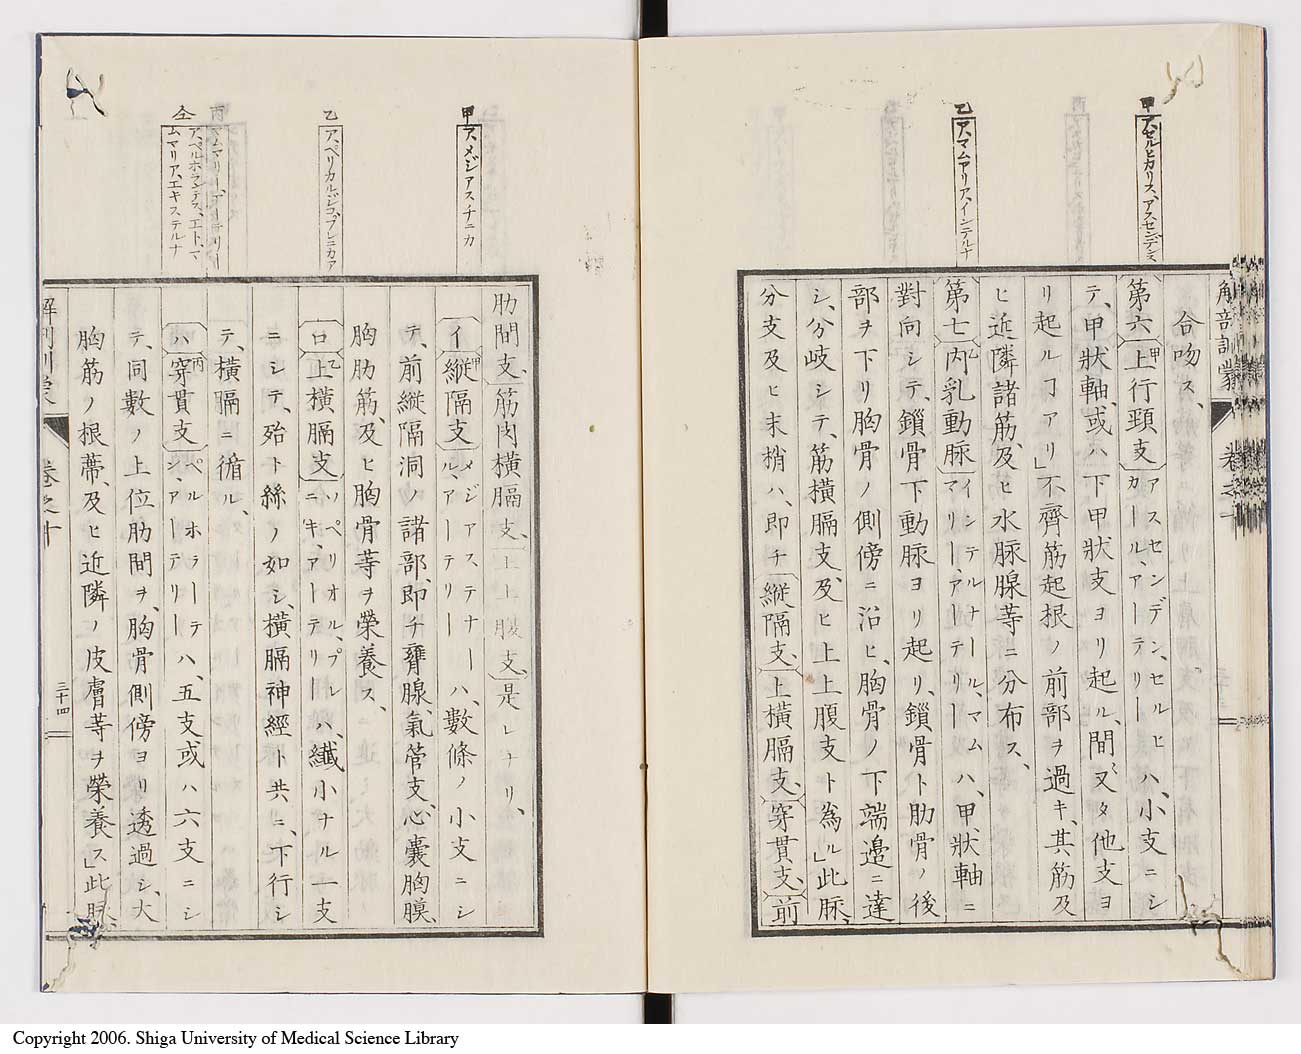 甲 ア、セルヒカリス、アスセンデンス
乙 ア、マムアリア、インテルナ
解剖訓蒙
巻之十
合吻ス、
第六 上行頸支 甲 アスセンデン、セルヒカール、アーテリー ハ、小支ニシ
テ、甲狀軸、或ハ下甲狀支ヨリ起ル、間〻又タ他支ヨ
リ起ルヿアリ」不齊筋起根ノ前部ヲ過キ、其筋及
ヒ近隣諸筋、及ヒ水脈腺等ニ分布ス、
第七 内乳動脈 乙 インテルナール、マムマリー、アーテリー ハ、甲狀軸ニ
對向シテ、鎖骨下動脈ヨリ起リ、鎖骨ト肋骨ノ後
部ヲ下リ胸骨ノ側傍ニ沿ヒ、胸骨ノ下端邉ニ達
シ、分岐シテ、筋橫膈支、及ヒ上上腹支ト為ル」此脈、
分支及ヒ末梢ハ、即チ縱隔支、上橫膈支、穿貫支、前
甲 ア、メジアスチニカ
乙 ア、ペリカルジコ、フレニカア
丙
仝 ア、ペルホランテス、エト、マ
ムマリア、エキステルナ
肋間支、筋肉橫膈支、上上腹支、是レナリ、
イ 縱隔支 甲 メジアステナール、アーテリー ハ、數條ノ小支ニシ
テ、前縱隔洞ノ諸部、即チ臍腺、氣管支、心嚢胸膜、
胸肋筋、及ヒ胸骨等ヲ榮養ス、
ロ 上橫膈支 乙 ソペリオル、フレニキ、アーテリー ハ、纎小ナル一支
ニシテ、殆ト絲ノ如シ、橫膈神經ト共ニ、下行シ
テ、橫膈ニ循ル、
ハ 穿貫支 丙 ペルホラーテン、アーテリー ハ、五支或ハ六支ニシ
テ、同數ノ上位肋間ヲ、胸骨側傍ヨリ透過シ、大
胸筋ノ根蔕、及ヒ近隣ノ皮膚等ヲ榮養ス」此脈
解剖訓蒙
巻之十
三十四
Copyright 2006. Shiga University of Medical Science Library